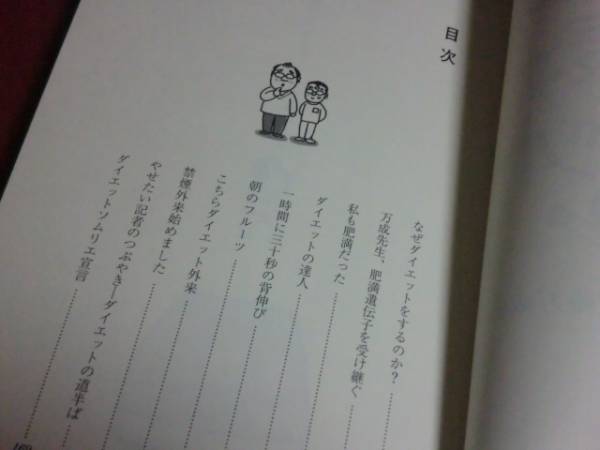 目次
なぜダイエットをするのか?
万成先生、肥満遺伝子を受け継ぐ
私も肥満だった
ダイエットの達人
一時間に三十秒の背伸び
朝のフルーツ
こちらダイエット外来
禁煙外来始めました
やせたい記者のつぶやき―ダイエットの道半ば
ダイエットソムリエ宣言